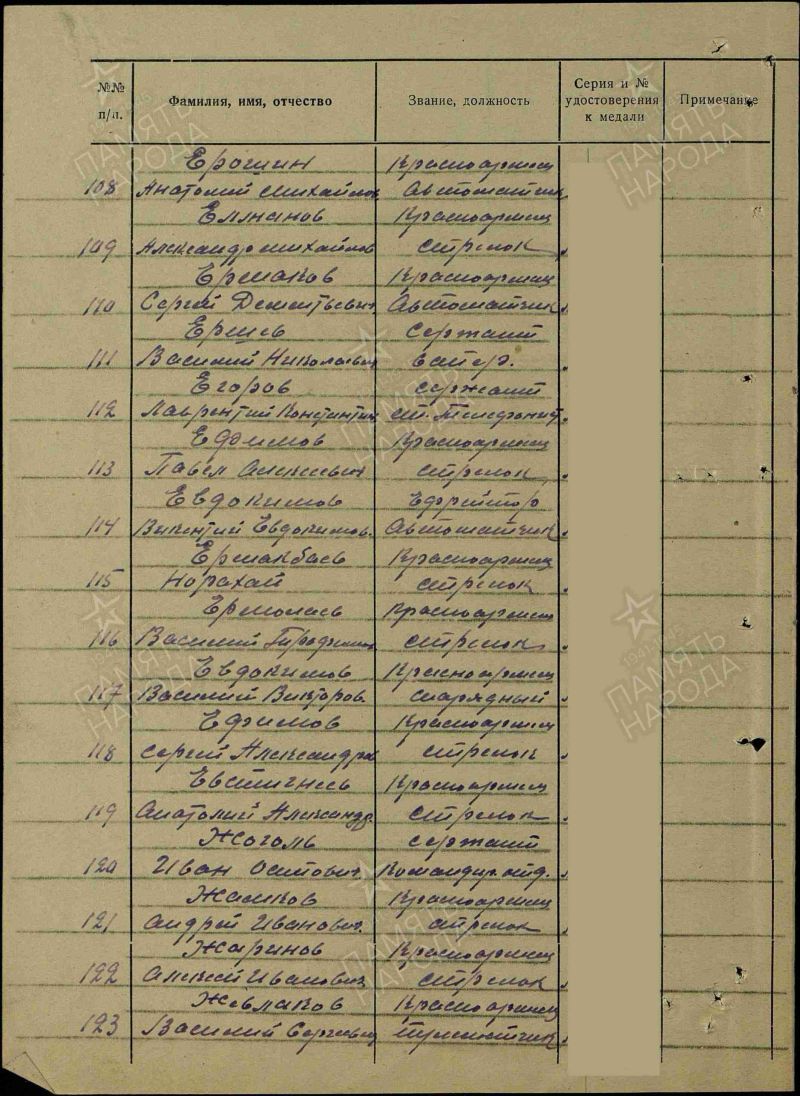 №№ п/п. Фамилия, имя, отчество Звание, должность Серия и № удостоверения к медали Примечание
Ерошин Красноармеец
108 Анатолий Михайлов. Автоматчик
Елманов Красноармеец
109 Александр Михайлов Стрелок
Ермаков Красноармеец
110 Сергей Дементьевич Автоматчик
Ершев Сержант
111 Василий Николаевич
Егоров Сержант
112 Лаврентий Константин Ст. Телефонист
Ефимов Красноармеец
113 Павел Алексеевич Стрелок
Евдокимов Ефрейтор
114 Викентий Евдокимов. Автоматчик
Ермакбаев Красноармеец
115 Норахай Стрелок
Ермолаев Красноармеец
116 Василий Стрелок
Евдокимов Красноармеец
117 Василий Викторов. Снарядный
Ефимов Красноармеец
118 Сергей Александров Стрелок
Евстигнеев Красноармеец
119 Анатолий Александр. Стрелок
Жоголь Сержант
120 Иван Осипович. Командир отд.
Жалков Красноармеец
121 Андрей Иванович. Стрелок
Жаринов Красноармеец
122 Алексей Иванович Стрелок
Жевлаков Красноармеец
123 Василий Сергеевич
ПАМЯТЬ НАРОДА